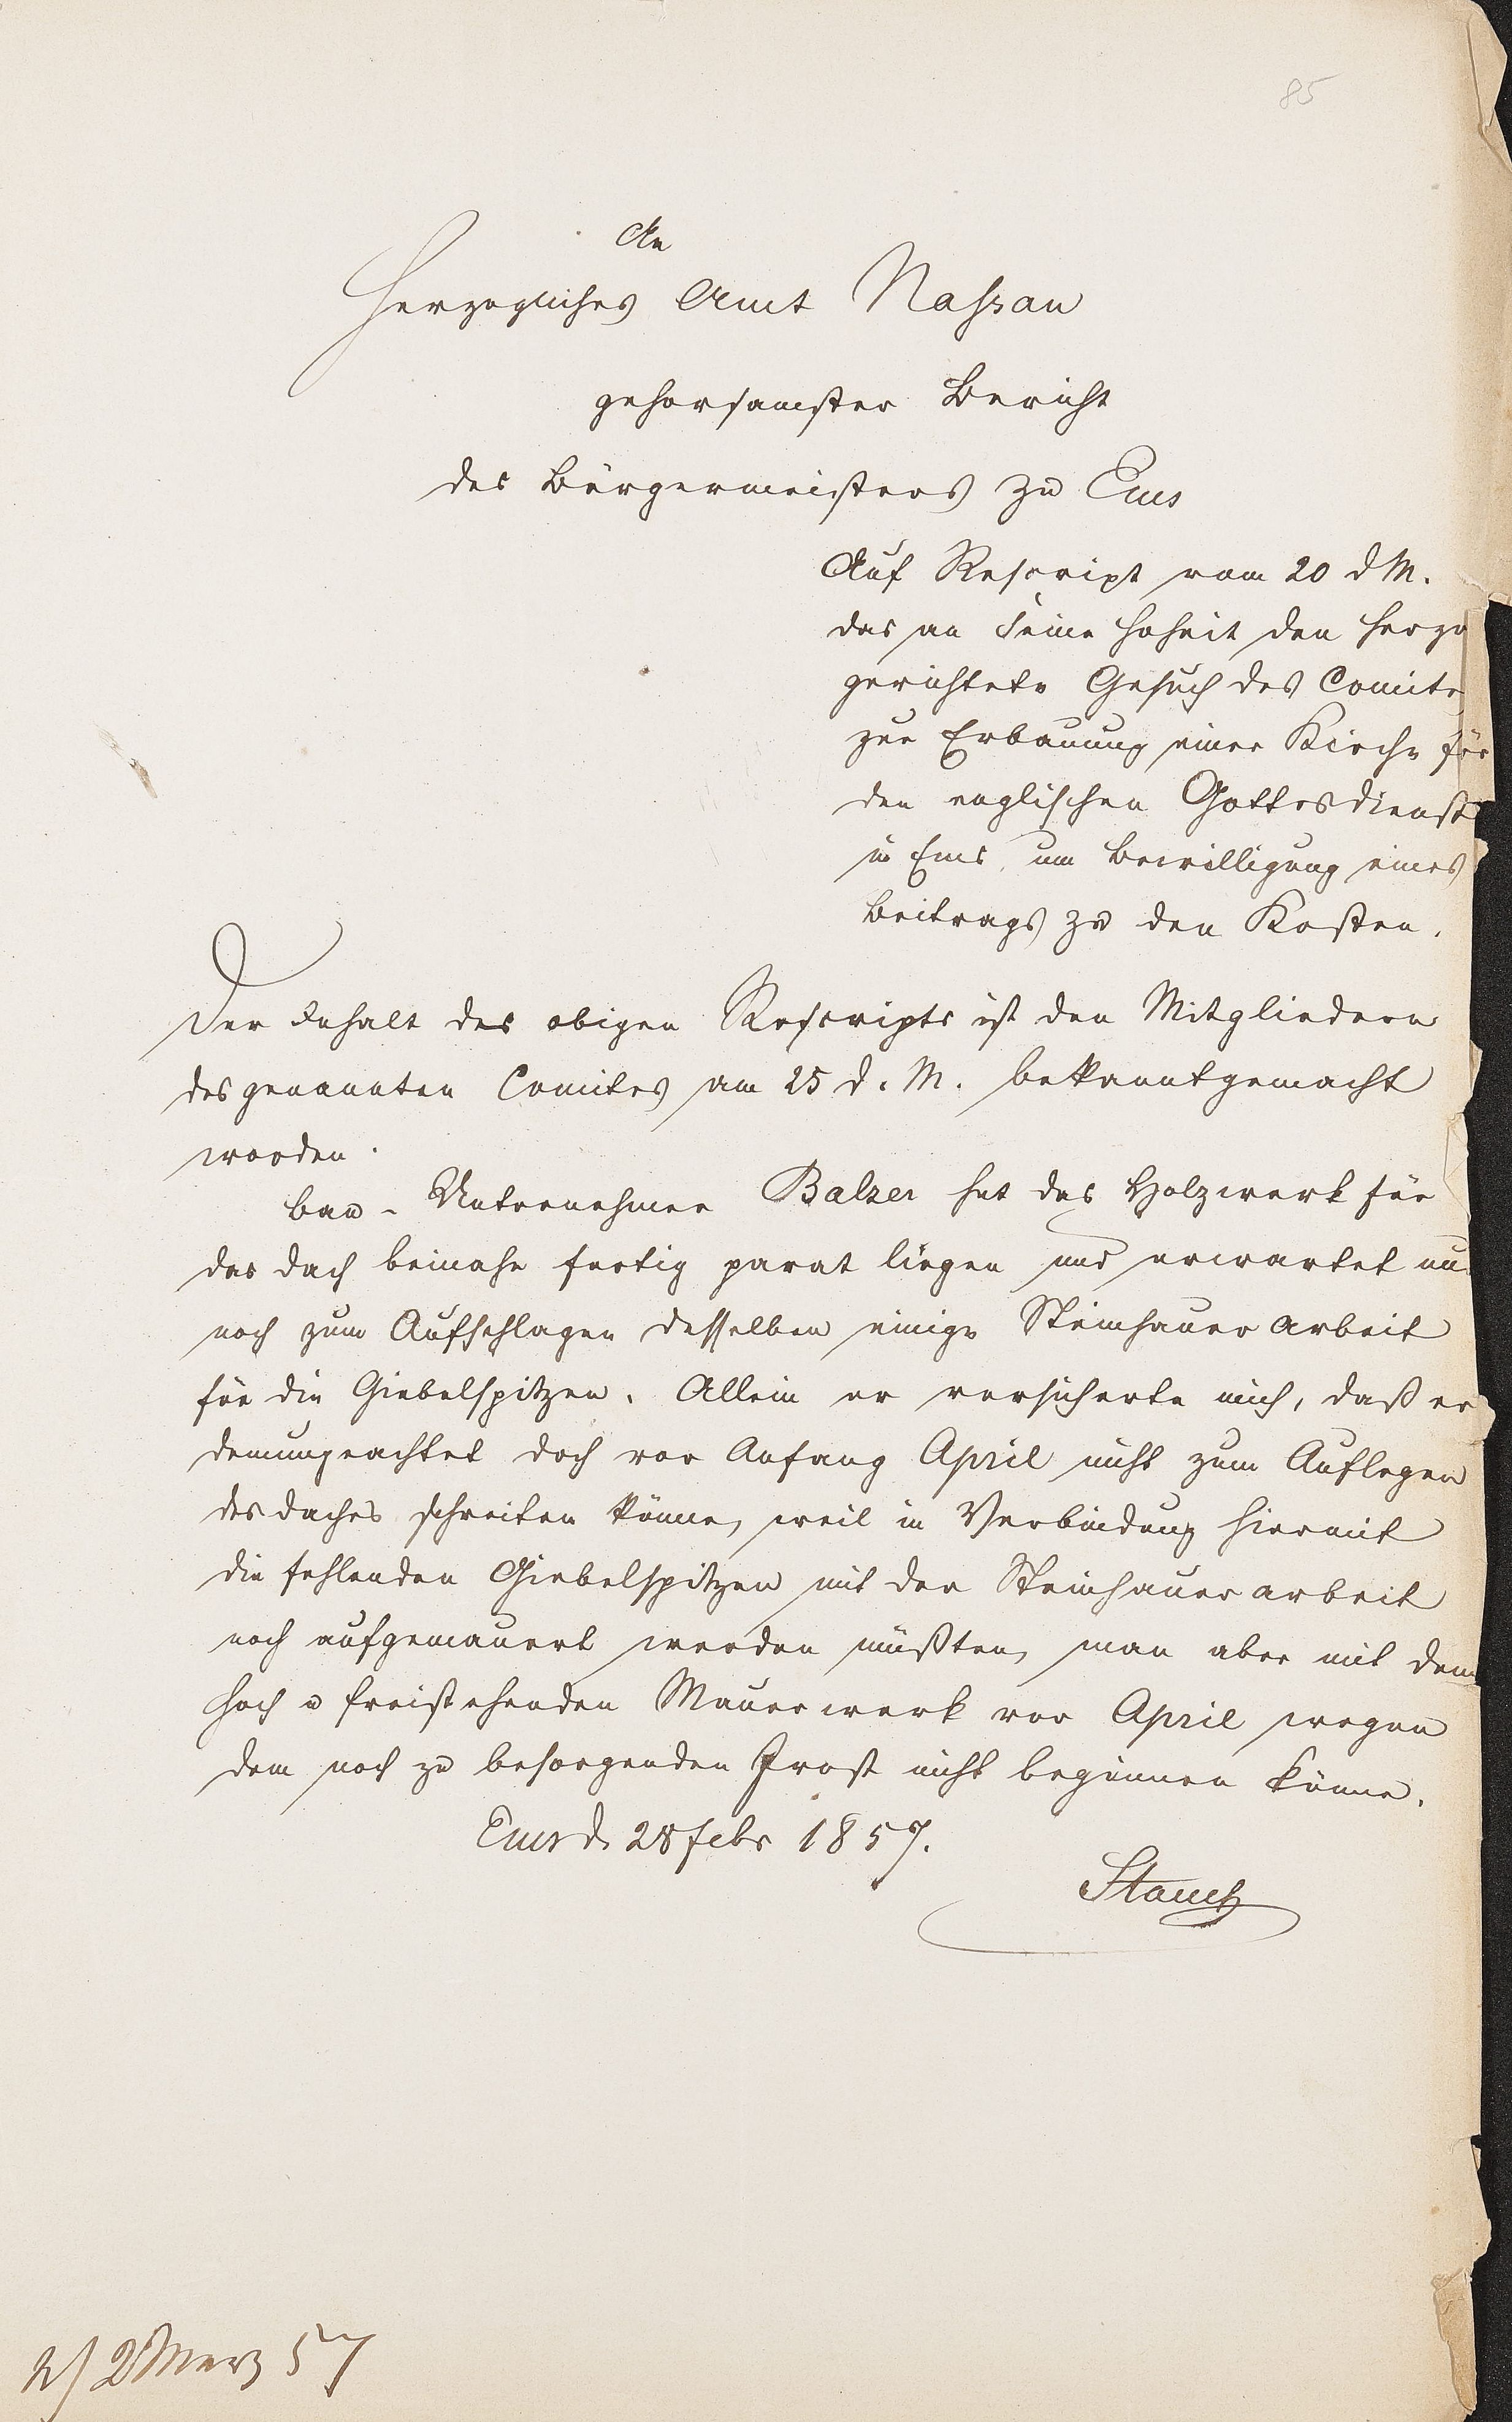 85
An
Herzogliches Amt Nassau
gehorsamster Bericht
des Bürgermeisters zu Ems
Auf Rescript vom 20 d M.
das an Seine Hoheit den Herzo
gerichtete Gesuch des Comite
zur Erbauung einer Kirche für
den englischen Gottesdienst
in Ems, um Bewilligung eines
Beitrags zu den Kosten.
Der Inhalt des obigen Rescripts ist den Mitgliedern
des genannten Comites am 25 d. M. bekanntgemacht
worden.
Bau-Unternehmer Balzer hat das Holzwerk für
das Dach beinahe fertig parat liegen und erwartet nu
noch zum Aufschlagen desselben einige Steinhauer arbeit
für die Giebelspitzen. Allein er versicherte mich, daß er
demungeachtet doch vor Anfang April nicht zum Auflegen
des Daches schreiten könne, weil in Verbindung hiermit
die fehlenden Giebelspitzen mit der Steinhauer arbeit
noch aufgemauert werden müßten, man aber mit dem
hoch u freistehenden Mauerwerk vor April wegen
dem noch zu besorgenden Frost nicht beginnen könne.
Ems d. 28 Febr 1857.
2 Merz 57